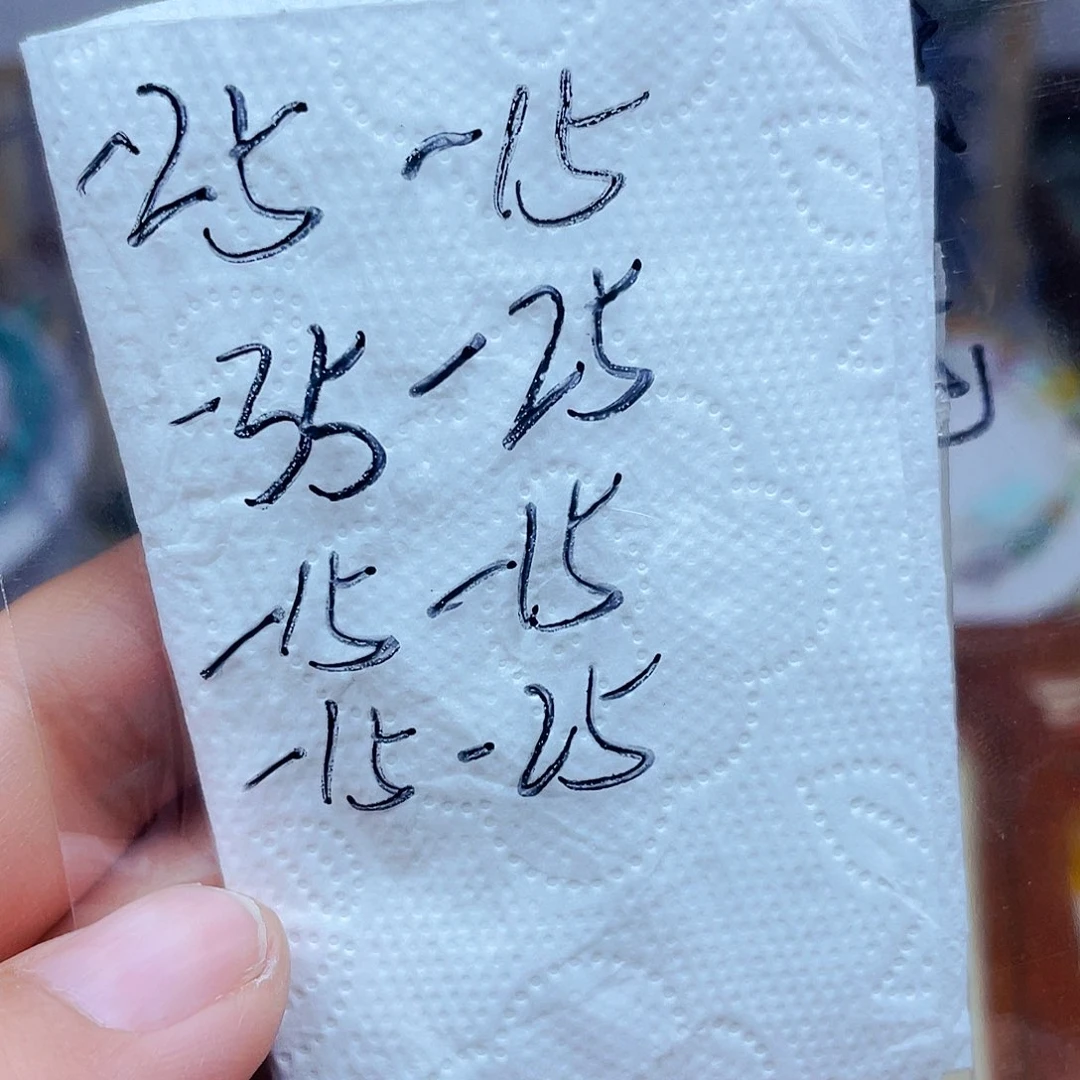 -25 -15
-35 -25
-15 -15
-15 -25